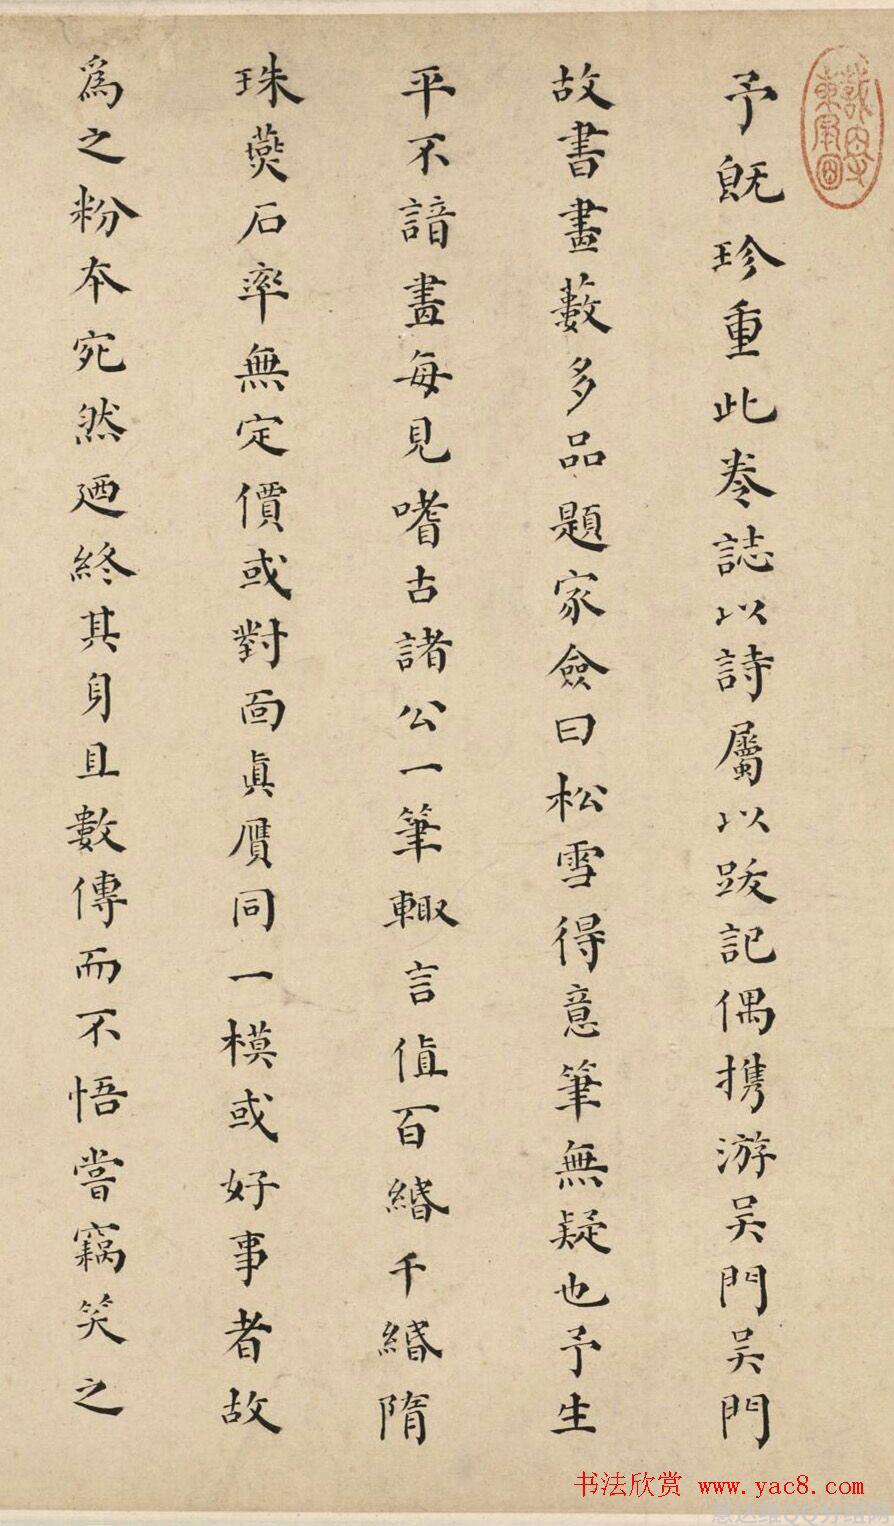 予既珍重此卷誌以詩屬以跋記偶攜游吳門吳門
故書畫藪多品題家僉曰松雪得意筆無疑也予生
平不諳畫每見嗜古諸公一筆輙言值百緡千緡隋
珠燕石率無定價或對面真贋同一模或好事者故
為之粉本宛然迺終其身且數傳而不悟嘗竊笑之
书法欣赏 www.yac8.com